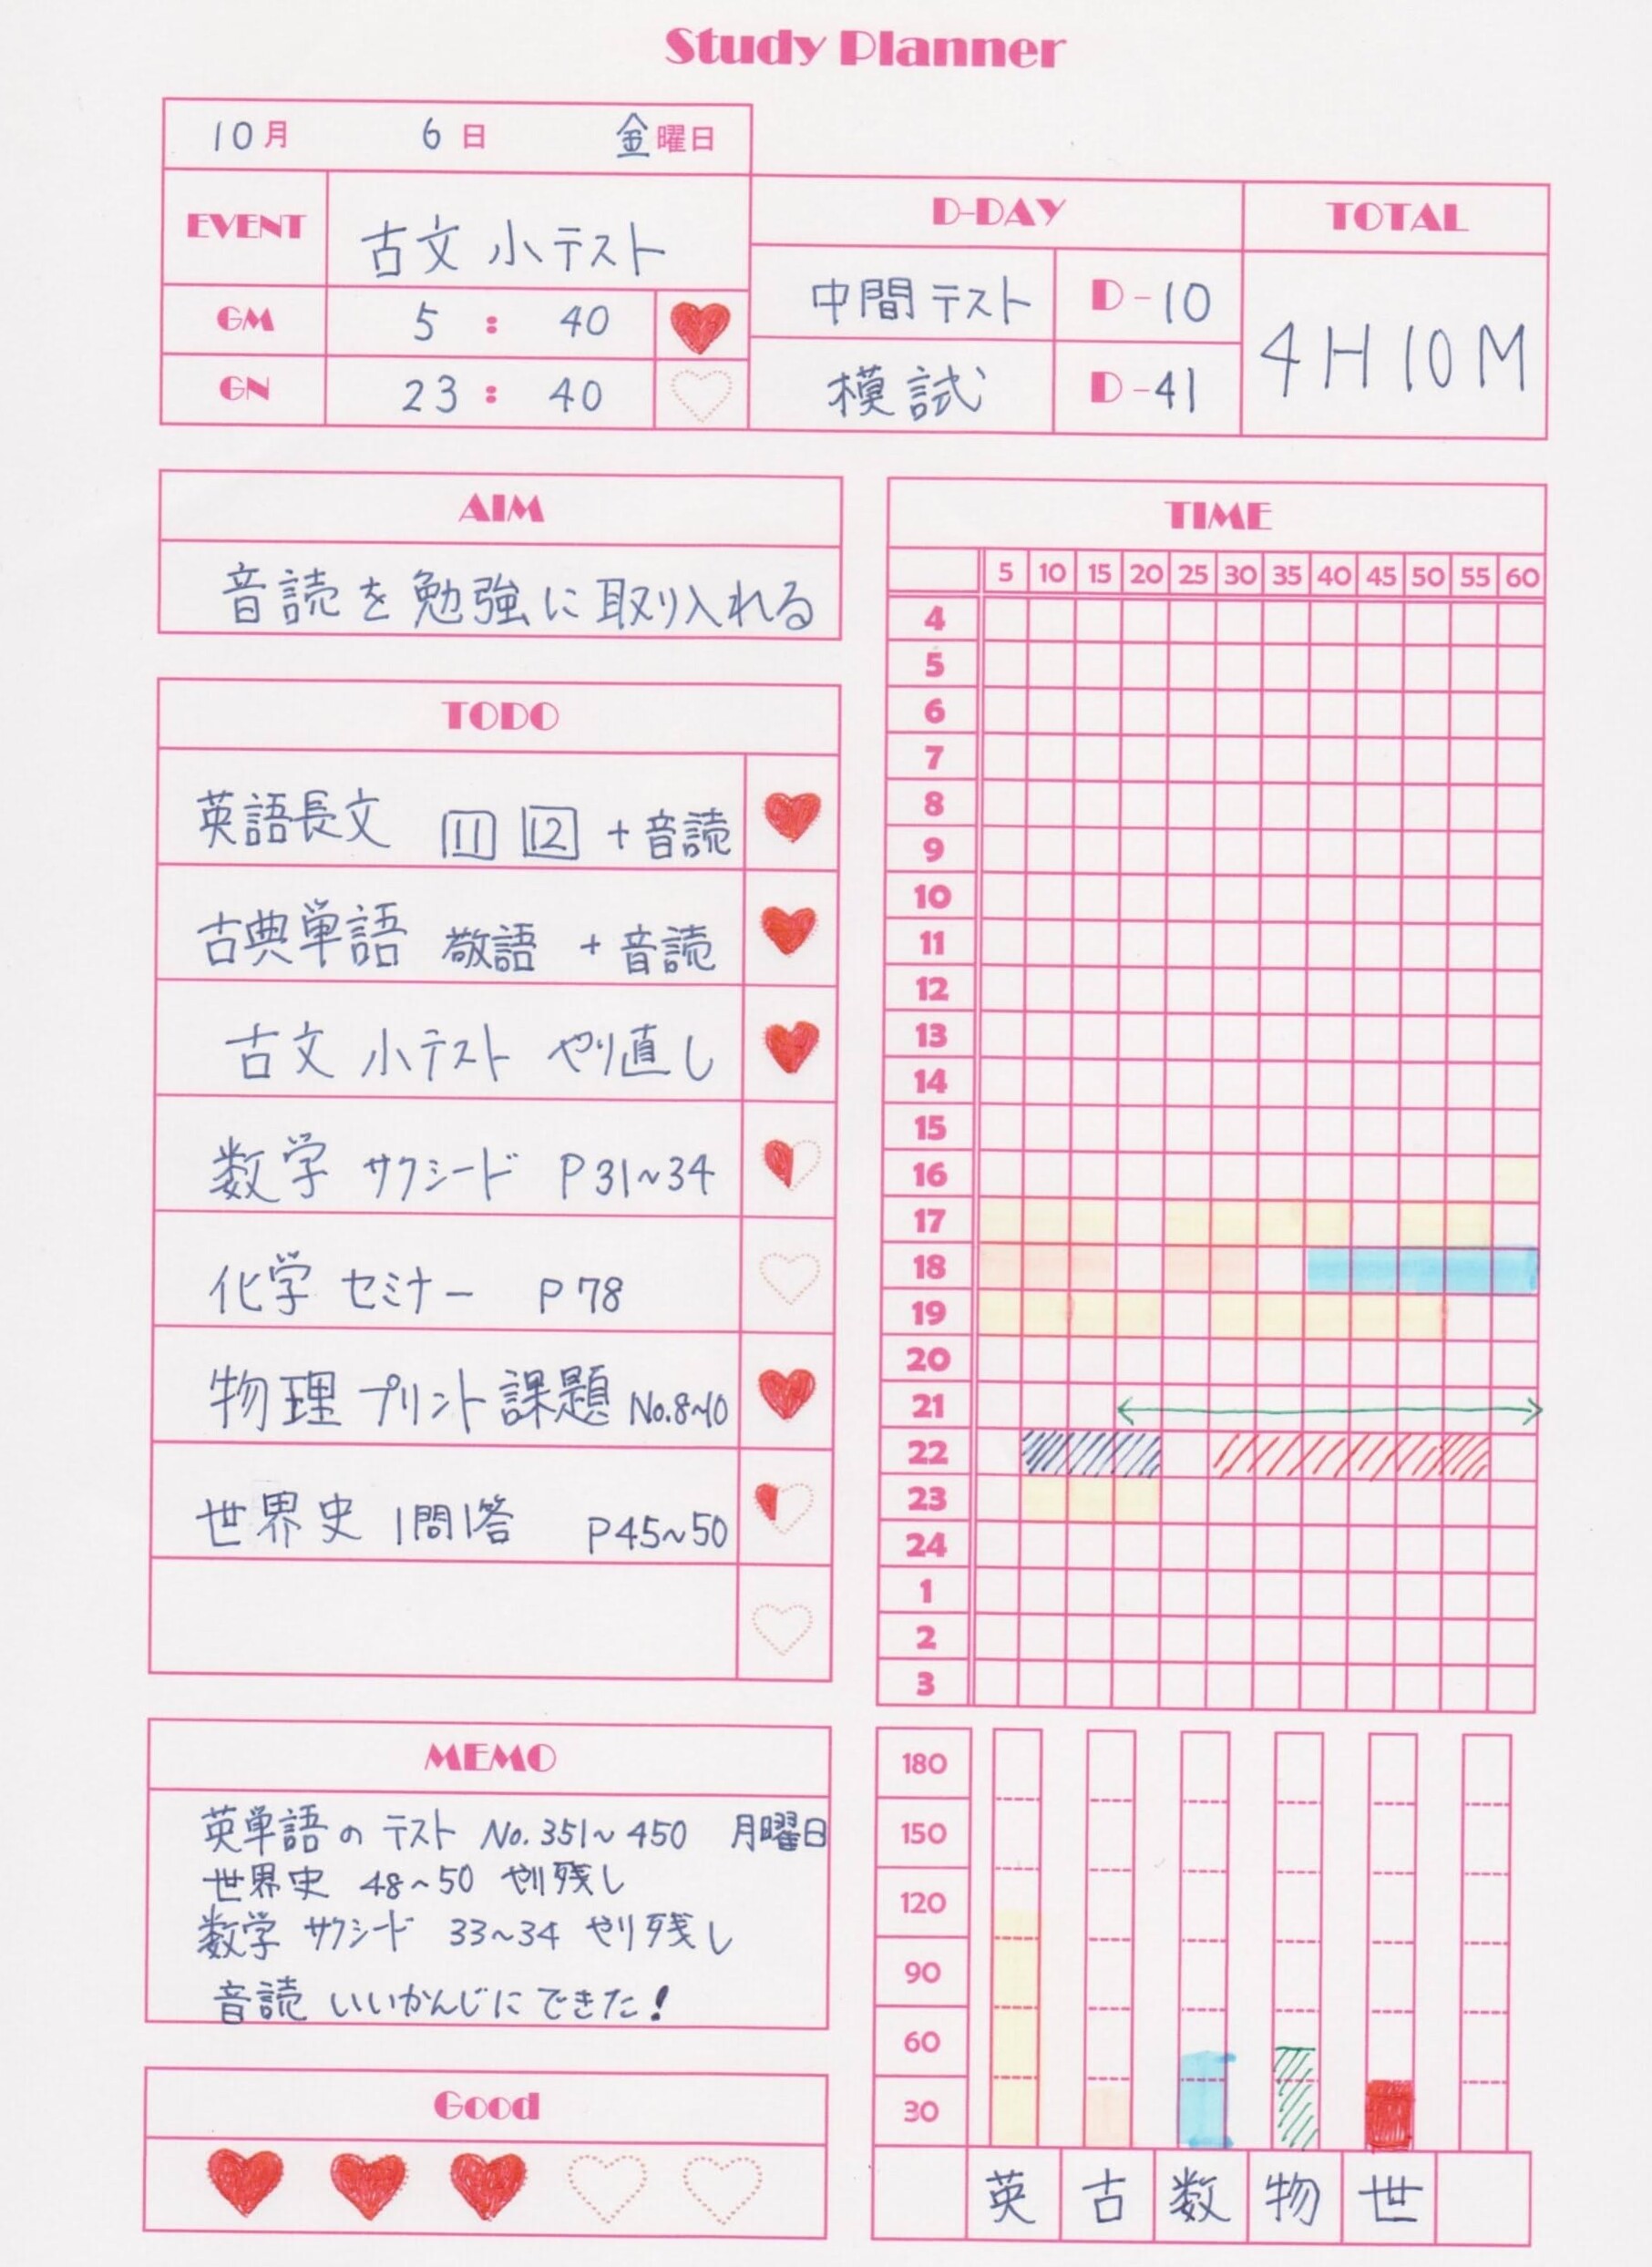 Study Planner
10月 6日 金曜日
EVENT 古文 小テスト
GM 5 : 40
GN 23 : 40
D-DAY TOTAL
中間テスト D-10
模試 D-41
4H10M
AIM
音読を勉強に取り入れる
TODO
英語長文 11 12 +音読
古典単語 敬語 +音読
古文 小テスト やり直し
数学 サクシード P31~34
化学 セミナー P78
物理 プリント課題 No.8~10
世界史 1問1答 P45~50
TIME
5 10 15 20 25 30 35 40 45 50 55 60
4
5
6
7
8
9
10
11
12
13
14
15
16
17
18
19
20
21
22
23
24
1
2
3
MEMO
英単語のテスト No.351~450 月曜日
世界史 48~50 やり残し
数学 サクシード 33~34 やり残し
音読 いいかんじにできた!
Good
180
150
120
90
60
30
英 古 数 物 世